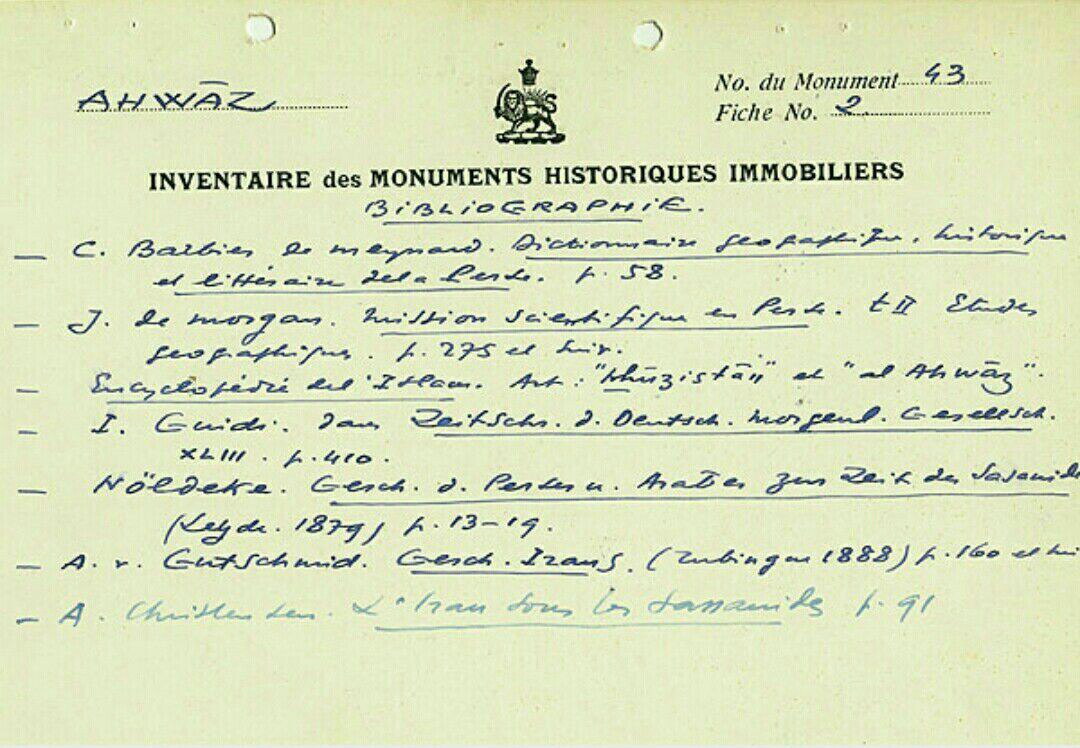 AHWĀZ
No. du Monument 43
Fiche No. 2
INVENTAIRE des MONUMENTS HISTORIQUES IMMOBILIERS
BIBLIOGRAPHIE.
— C. Barbier de Meynard. Dictionnaire géographique, historique
et littéraire de la Perse. p. 58.
— J. de Morgan. Mission scientifique en Perse. t II Etudes
géographiques. p. 275 et suiv.
— Encyclopédie de l'Islam. Art : "Khūzistān" et "al Ahwāz".
— I. Guidi. dans Zeitschr. d. Deutsch. Morgenl. Gesellsch.
XLIII. p. 410.
— Nöldeke. Gesch. d. Perser u. Araber zur Zeit der Sasanide
(Leyde. 1879) p. 13-19.
— A. v. Gutschmid. Gesch. Irans. (Tubingue 1888) p. 160 et
— A. Christensen. L'Iran sous les Sassanides p. 91